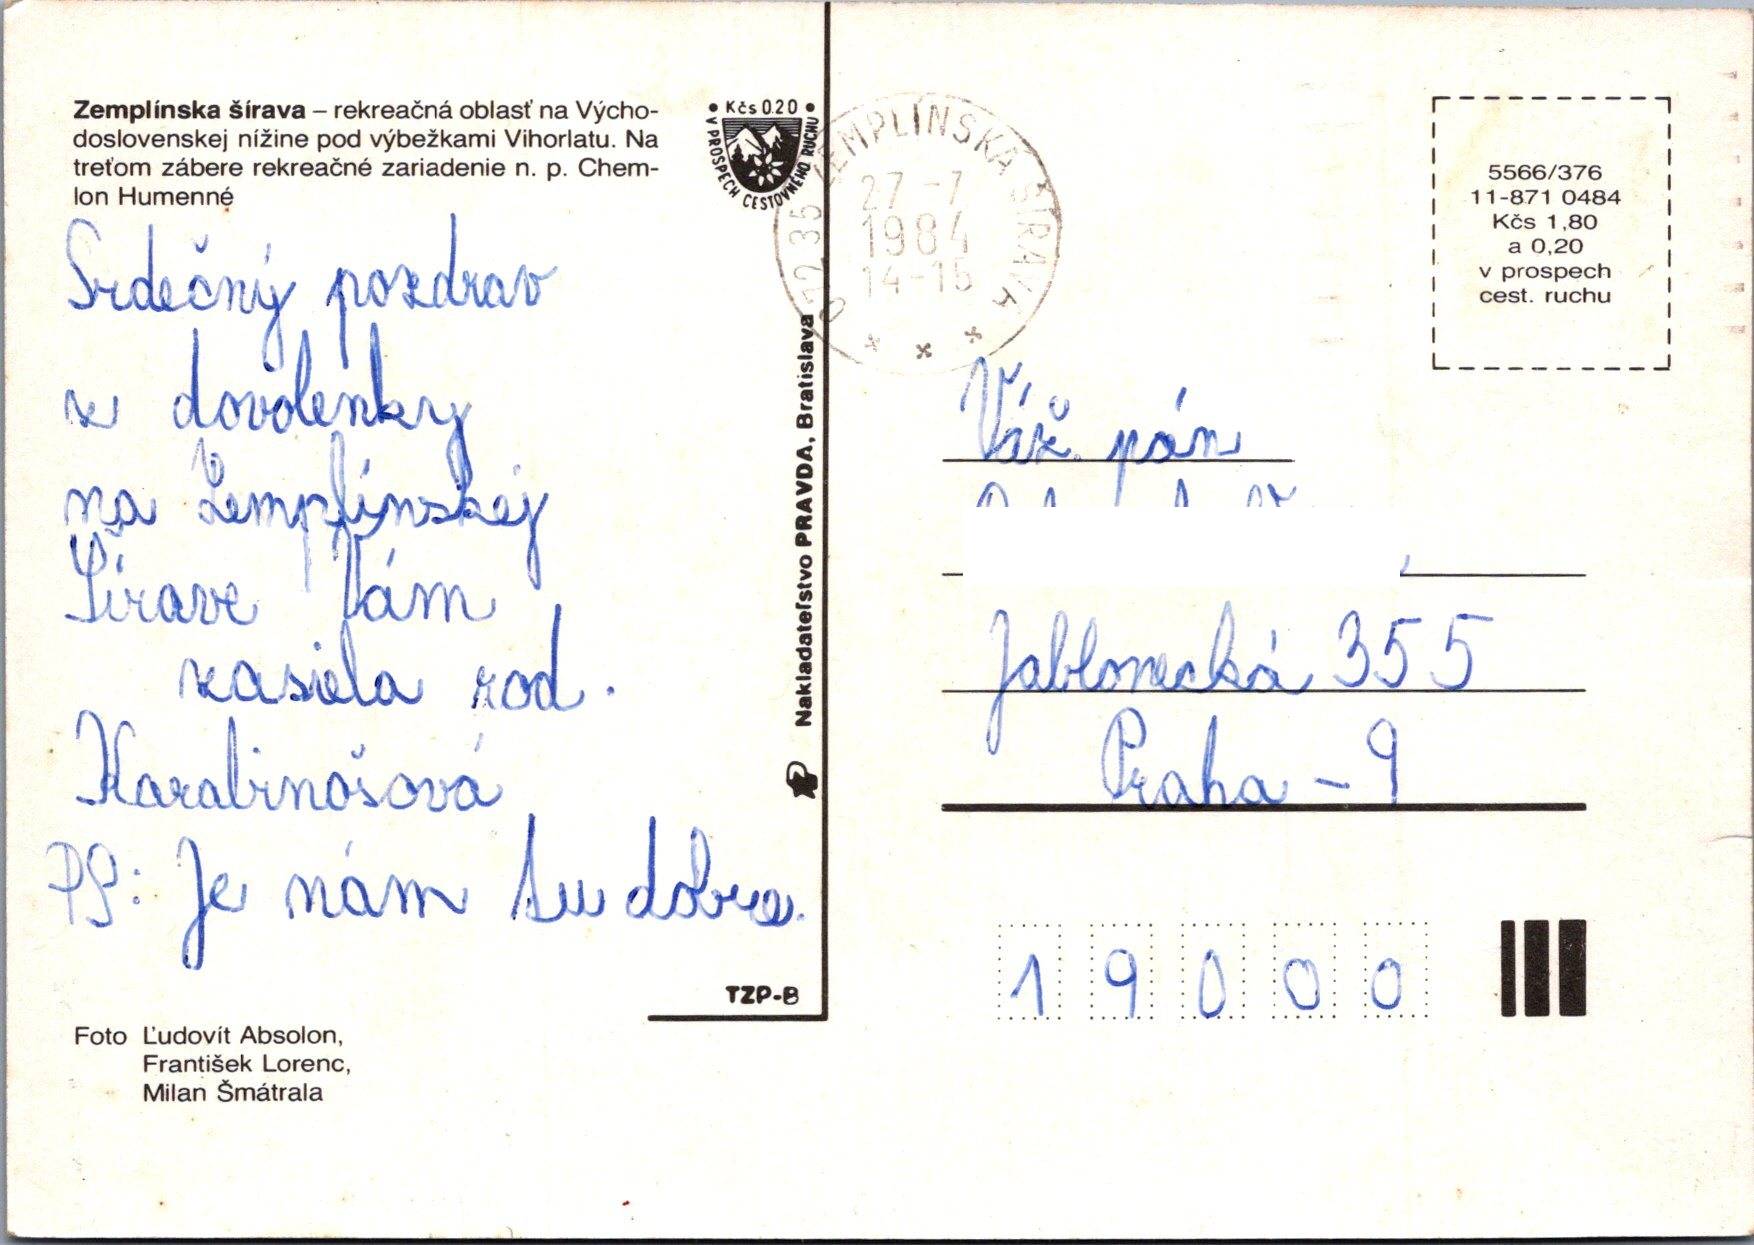 Zemplínska šírava – rekreačná oblasť na Výcho-
doslovenskej nížine pod výbežkami Vihorlatu. Na
treťom zábere rekreačné zariadenie n. p. Chem-
lon Humenné
Srdečný pozdrav
z dovolenky
na Zemplínskej
Šírave Vám
zasiela rod.
Karabinošová
PS: Je nám tu dobre.
Foto Ľudovít Absolon,
František Lorenc,
Milan Šmátrala
• Kčs 0.20 •
V PROSPECH CESTOVNÉHO RUCHU
Nakladateľstvo PRAVDA, Bratislava
TZP-B
ZEMPLÍNSKA ŠÍRAVA
27 -7
1984
14-15
5566/376
11-871 0484
Kčs 1,80
a 0,20
v prospech
cest. ruchu
Váž. pán
Jablonecká 355
Praha - 9
19000